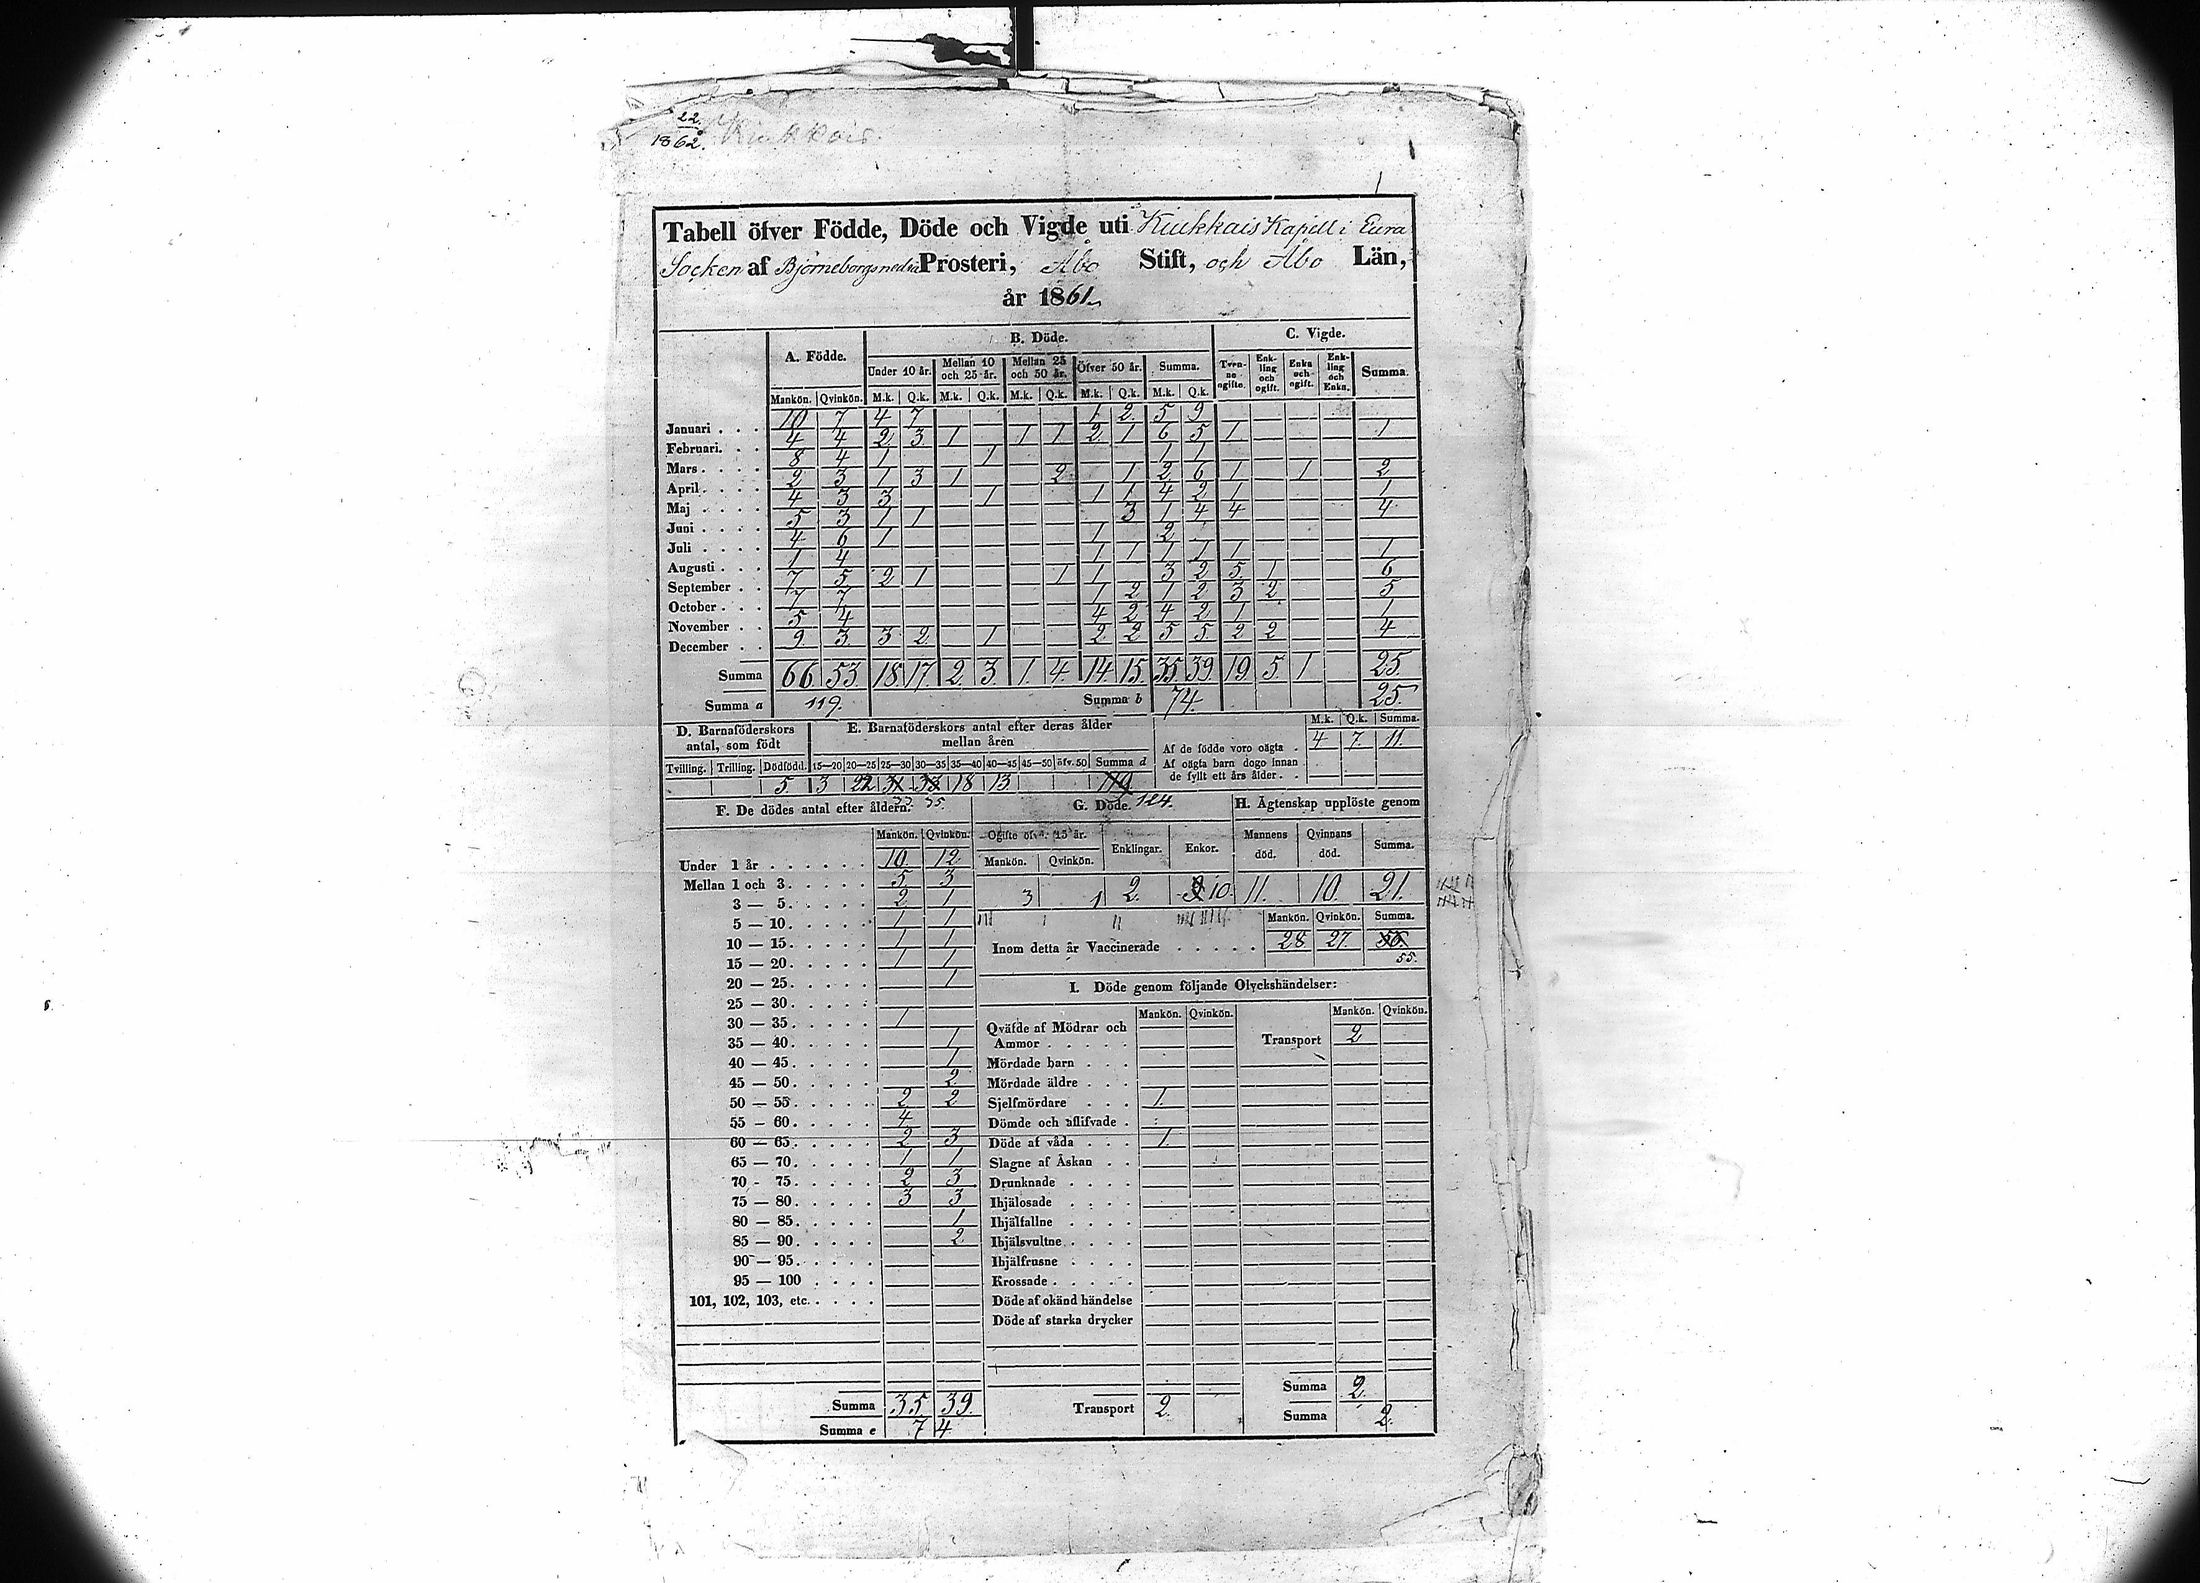 22.
1862. Kiukkais.
Tabell öfver Födde, Döde och Vigde uti Kiukkais Kapell i Eura
Socken af Björneborgs nedra Prosteri, Åbo Stift, och Åbo Län,
år 1861.
A. Födde. B. Döde. C. Vigde.
Under 10 år. Mellan 10 och 25 år. Mellan 25 och 50 år. Öfver 50 år. Summa. Tvenne ogifte. Enkling och ogift. Enka och ogift. Enkling och Enka. Summa.
Mankön. Qvinkön. M.k. Q.k. M.k. Q.k. M.k. Q.k. M.k. Q.k. M.k. Q.k.
Januari . . . 10 7 4 7 1 2 5 9
Februari. . . 4 4 2 3 1 1 1 2 1 6 5 1 1
Mars . . . . 8 4 1 1 1 1
April . . . . 2 3 1 3 1 2 1 2 6 1 1 2
Maj . . . . 4 3 3 1 1 1 4 2 1 1
Juni . . . . 5 3 1 1 3 1 4 4 4
Juli . . . . 4 6 1 1 2
Augusti . . . 1 4 1 1 1 1 1 1
September . . 7 5 2 1 1 1 3 2 5 1 6
October . . . 7 7 1 2 1 2 3 2 5
November . . 5 4 4 2 4 2 1 1
December . . 9 3 3 2 1 2 2 5 5 2 2 4
Summa 66 53 18 17 2 3 1 4 14 15 35 39 19 5 1 25
Summa a 119. Summa b 74. 25.
D. Barnaföderskors antal, som födt
E. Barnaföderskors antal efter deras ålder mellan åren
M.k. Q.k. Summa.
Af de födde voro oägta . 4 7. 11.
Af oägta barn dogo innan
de fyllt ett års ålder . .
Tvilling. Trilling. Dödfödd. 15—20 20—25 25—30 30—35 35—40 40—45 45—50 öfv. 50 Summa d
5. 3 22 18 13
33. 35. 124.
F. De dödes antal efter åldern. G. Döde. H. Ägtenskap upplöste genom
Mankön. Qvinkön. Ogifte öfver 15 år. Enklingar. Enkor. Mannens död. Qvinnans död. Summa.
Mankön. Qvinkön.
3 1 2. 10. 11. 10. 21.
Under 1 år . . . . . . 10. 12
Mellan 1 och 3. . . . . 5 3
3 — 5. . . . . 2 1
5 — 10. . . . . 1 1
10 — 15. . . . . 1 1
15 — 20. . . . . 1 1
20 — 25. . . . . 1
25 — 30. . . . .
30 — 35. . . . . 1
35 — 40. . . . . 1
40 — 45. . . . . 1
45 — 50. . . . . 2
50 — 55. . . . . 2 2
55 — 60. . . . . 4
60 — 65. . . . . 2 3
65 — 70. . . . . 1 1
70 - 75. . . . . 2 3
75 — 80. . . . . 3 3
80 — 85. . . . . 1
85 — 90. . . . . 2
90 — 95. . . . .
95 — 100 . . . .
101, 102, 103, etc. . . . .
Summa 35 39.
Summa e 74
Mankön. Qvinkön. Summa.
Inom detta år Vaccinerade . . . . . 28 27. 56.
55.
I. Döde genom följande Olyckshändelser:
Mankön. Qvinkön. Mankön. Qvinkön.
Qväfde af Mödrar och
Ammor . . . . . Transport 2
Mördade barn . . .
Mördade äldre . . .
Sjelfmördare . . . 1.
Dömde och aflifvade .
Döde af våda . . . 1.
Slagne af Åskan . .
Drunknade . . . .
Ihjälosade . . . .
Ihjälfallne . . . .
Ihjälsvultne . . . .
Ihjälfrusne . . . .
Krossade . . . . .
Döde af okänd händelse
Döde af starka drycker
Summa 2.
Transport 2. Summa 2.